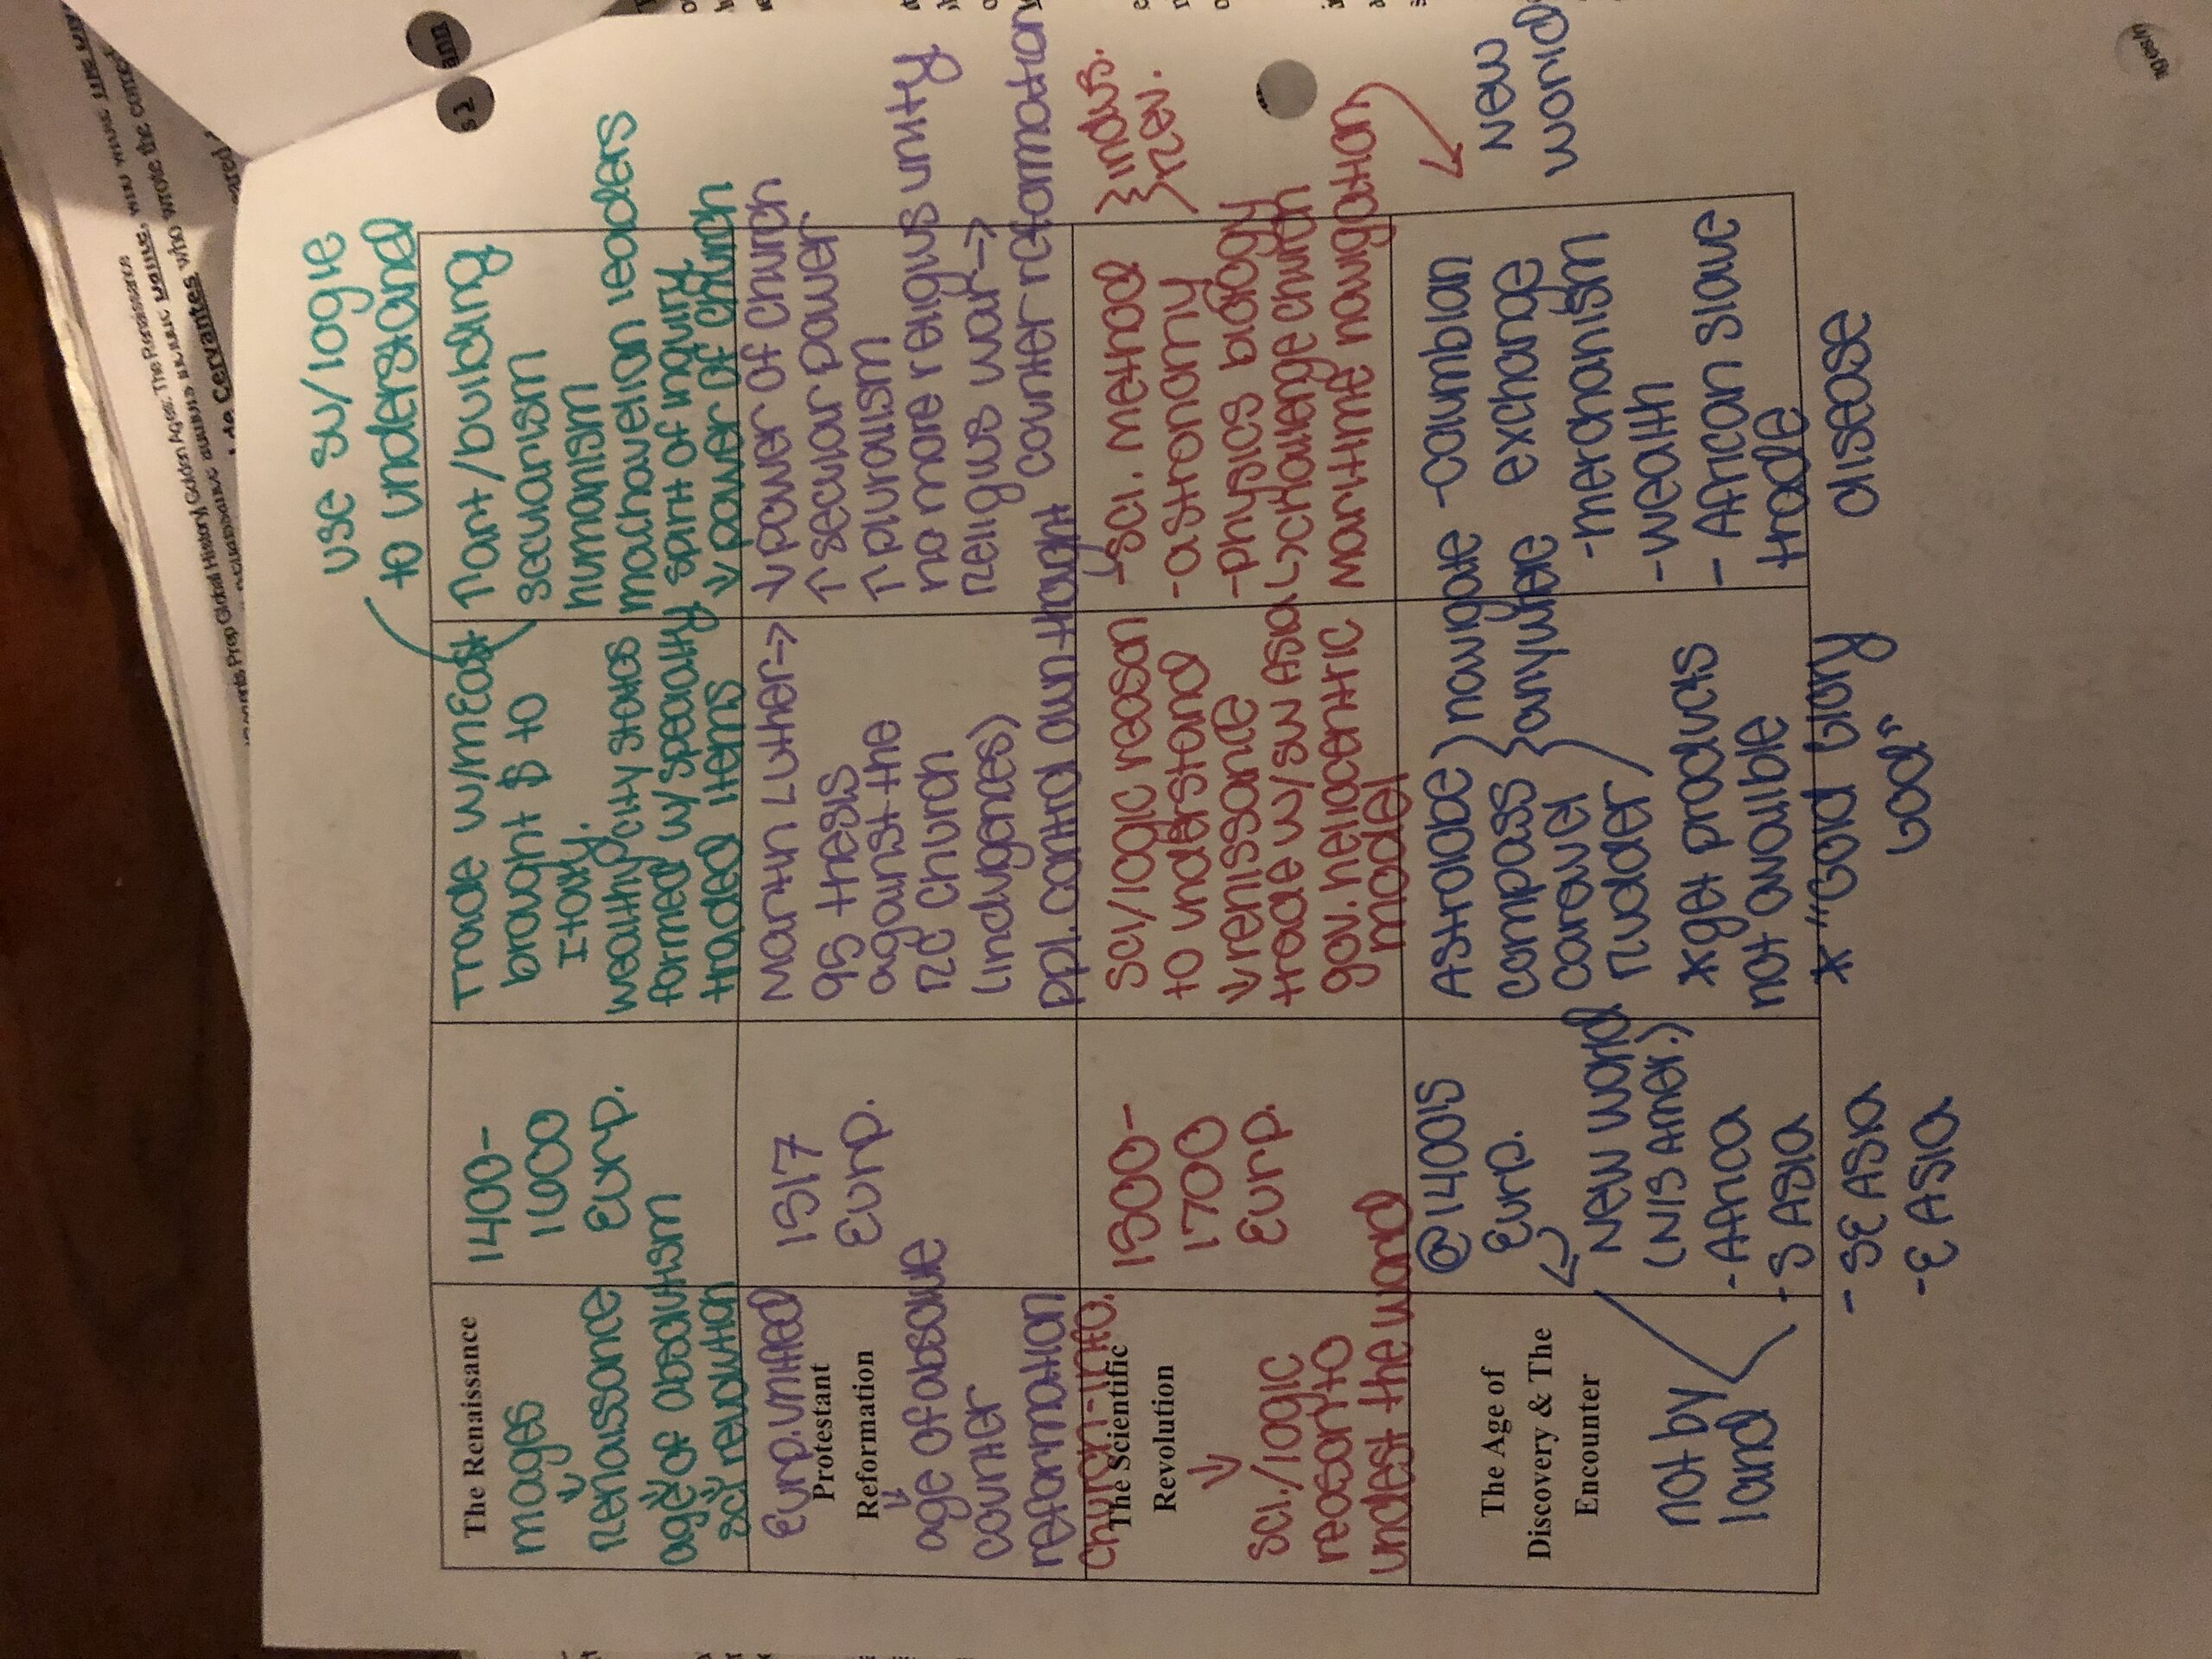 use sci/logic
to understand
The Renaissance
mages
↓
renaissance
↓
age of absolutism
↓
sci revolution
1400-
1600
Eurp.
Trade w/mEast
brought $ to
Italy.
wealthy city states
formed w/ speciality
traded items
↑ art/building
secularism
humanism
machavelian leaders
spirit of inquiry
↓ power of church
Eurp. unified
Protestant
Reformation
↓
age of absolute
counter
reformation
1517
Eurp.
Martin Luther →
95 thesis
against the
RC church
(indulgences)
ppl. control own thought
↓ power of church
↑ secular power
↑ pluralism
no more religius unity
religius war →
counter reformation
church-info.
The Scientific
Revolution
↓
sci./logic
reason to
undest the world
1500-
1700
Eurp.
sci/logic reason
to understand
↓ renissance
trade w/ sw Asia
gov. heliocentric
model
-sci. method
-astronomy
-physics biology
↳ challenge church
maritime navigation
} indus.
rev.
→ New
World
The Age of
Discovery & The
Encounter
not by
land
@1400is
Eurp.
↳ New World
(N/S Amer.)
- Africa
- S Asia
- SE Asia
- E Asia
Astrolabe ) navigate
compass } anywhere
caravel
rudder )
* get products
not availble
* "Gold Glory
God"
-Coumbian
exchange
-merchanism
-wealth
- African slave
trade
disease